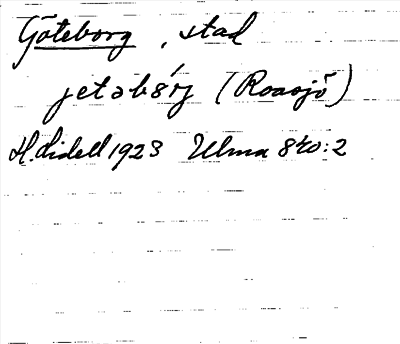 Göteborg , stad
jetəbórj (Roasjö)
H. Lidell 1923 Ulma 840:2